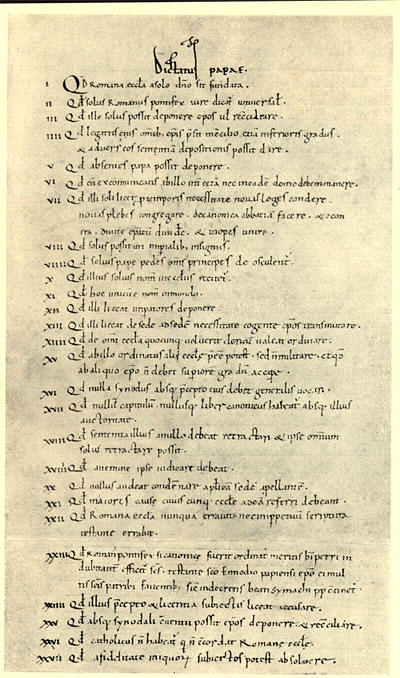 Dictatus papae.
I Qd Romana eccla a solo dno sit fundata.
II Qd solus Romanus pontifex iure dicat universal.
III Qd ille solus possit deponere epos ul reconciliare.
IIII Qd legatus eius omib epis psit in concilio etiā inferioris gradus.
& adversus eos sententiā depositionis possit dare.
V Qd absentes papa possit deponere.
VI Qd cū excommunicatis ab illo int cetā nec in eadē domo debemus manere.
VII Qd illi soli licet p temporis necessitate novas leges condere
novas plebes congregare. de canonica abbatiam facere. & econ
tra. divite episcopatū divide. & inopes unire.
VIII Qd solus possit uti impialib insigniis.
VIIII Qd solius pape pedes oms principes deosculent.
X Qd illius solius nom in ecclus recitet.
XI Qd hoc unicū ē nom in mundo.
XII Qd illi liceat impatores deponere.
XIII Qd illi liceat de sede ad sedē necessitate cogente epos transmutare.
XIIII Qd de omi eccla quocunq voluerit clericū valeat ordinare.
XV Qd ab illo ordinatus alii eccle pēe potest. sed n militare. et qd
ab aliquo epo n debet supiore gradū accipe.
XVI Qd nulla synodus absq pcepto eius debet generalis vocari.
XVII Qd nullū capitulū nullusq liber canonicus habeat absq illius
auctoritate.
XVIII Qd sententia illius a nullo debeat retractari & ipse omium
solus retractare possit.
XVIIII Qd a nemine ipse iudicari debeat.
XX Qd nullus audeat condēnare aplicā sedē apellante.
XXI Qd maiores cause cuiuscunq eccle ad eā referri debeant.
XXII Qd Romana eccla nunquā erravit nec imppetuū scriptura
testante errabit.
XXIII Qd Roman pontifex si canonice fuerit ordinat meritis bi petri in
dubitant efficit scs. testante sco Ennodio papiensi epo ei mul
tis scis patrib faventib. sic in decretis beati symachi pp cōtinet.
XXIIII Qd illius pcepto & licentia subiectis liceat accusare.
XXV Qd absq synodali cventu possit epos deponere. & reconciliare.
XXVI Qd catholicus n habeat q n cōcordat Romane eccle.
XXVII Qd a fidelitate iniquor subiectos potest absolvere.